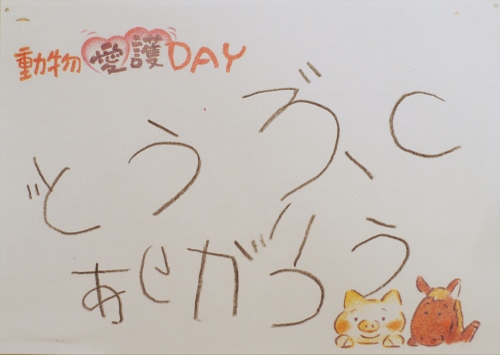 動物愛護DAY
どうぶつ
ありがとう